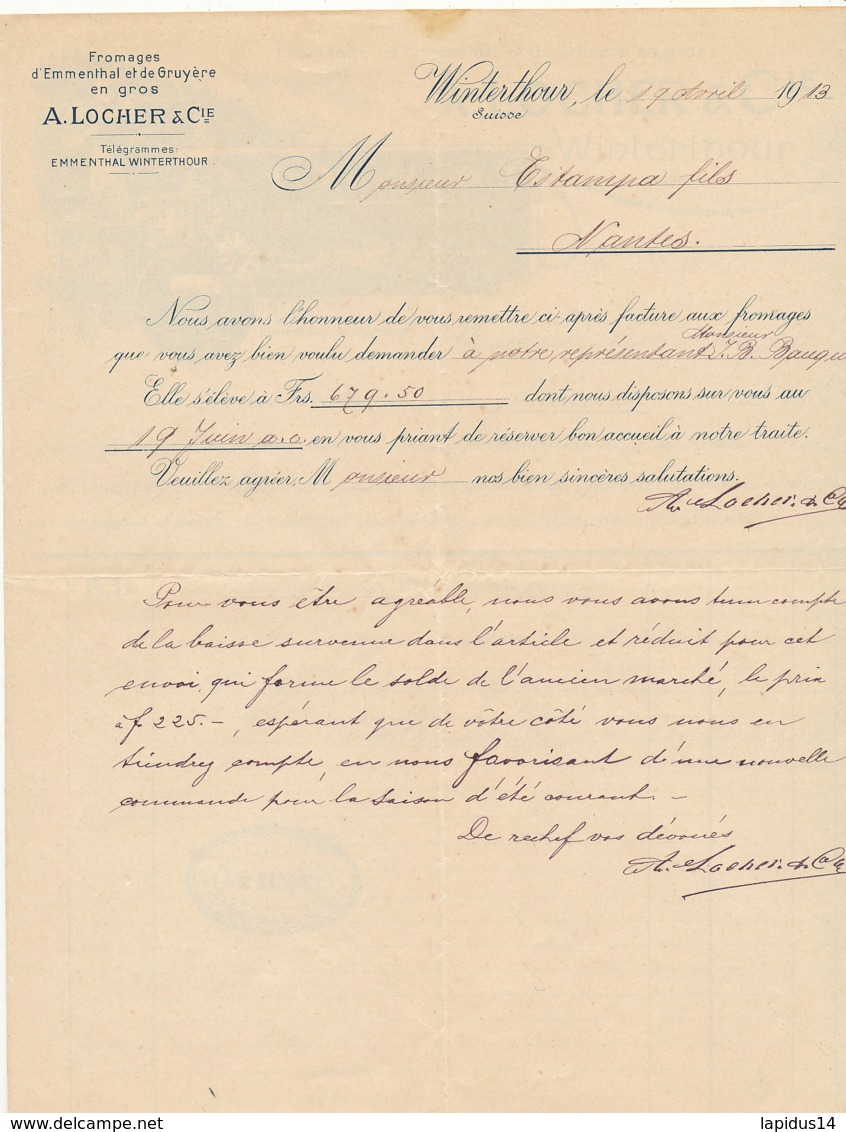 Fromages
d'Emmenthal et de Gruyère
en gros
A. LOCHER & CIE
Télégrammes:
EMMENTHAL WINTERTHOUR
Winterthour, le 19 Avril 1913
Suisse
Monsieur Estampa fils
Nantes.
Nous avons l'honneur de vous remettre ci-après facture aux fromages
Monsieur
que vous avez bien voulu demander à notre représentant J. B.
Elle s'élève à Frs. 679.50 dont nous disposons sur vous au
19 Juin a.c. en vous priant de réserver bon accueil à notre traite.
Veuillez agréer, Monsieur nos bien sincères salutations.
A. Locher & Cie
Pour vous être agréable, nous vous avons tenu compte
de la baisse survenue dans l'article et réduit pour cet
envoi, qui forme le solde de l'ancien marché, le prix
à f 225.-, espérant que de vôtre côté vous nous en
tiendrez compte, en nous favorisant d'une nouvelle
commande pour la saison d'été courant. -
De rechef vos dévoués
A. Locher & Cie
www.delcampe.net
lapidus14